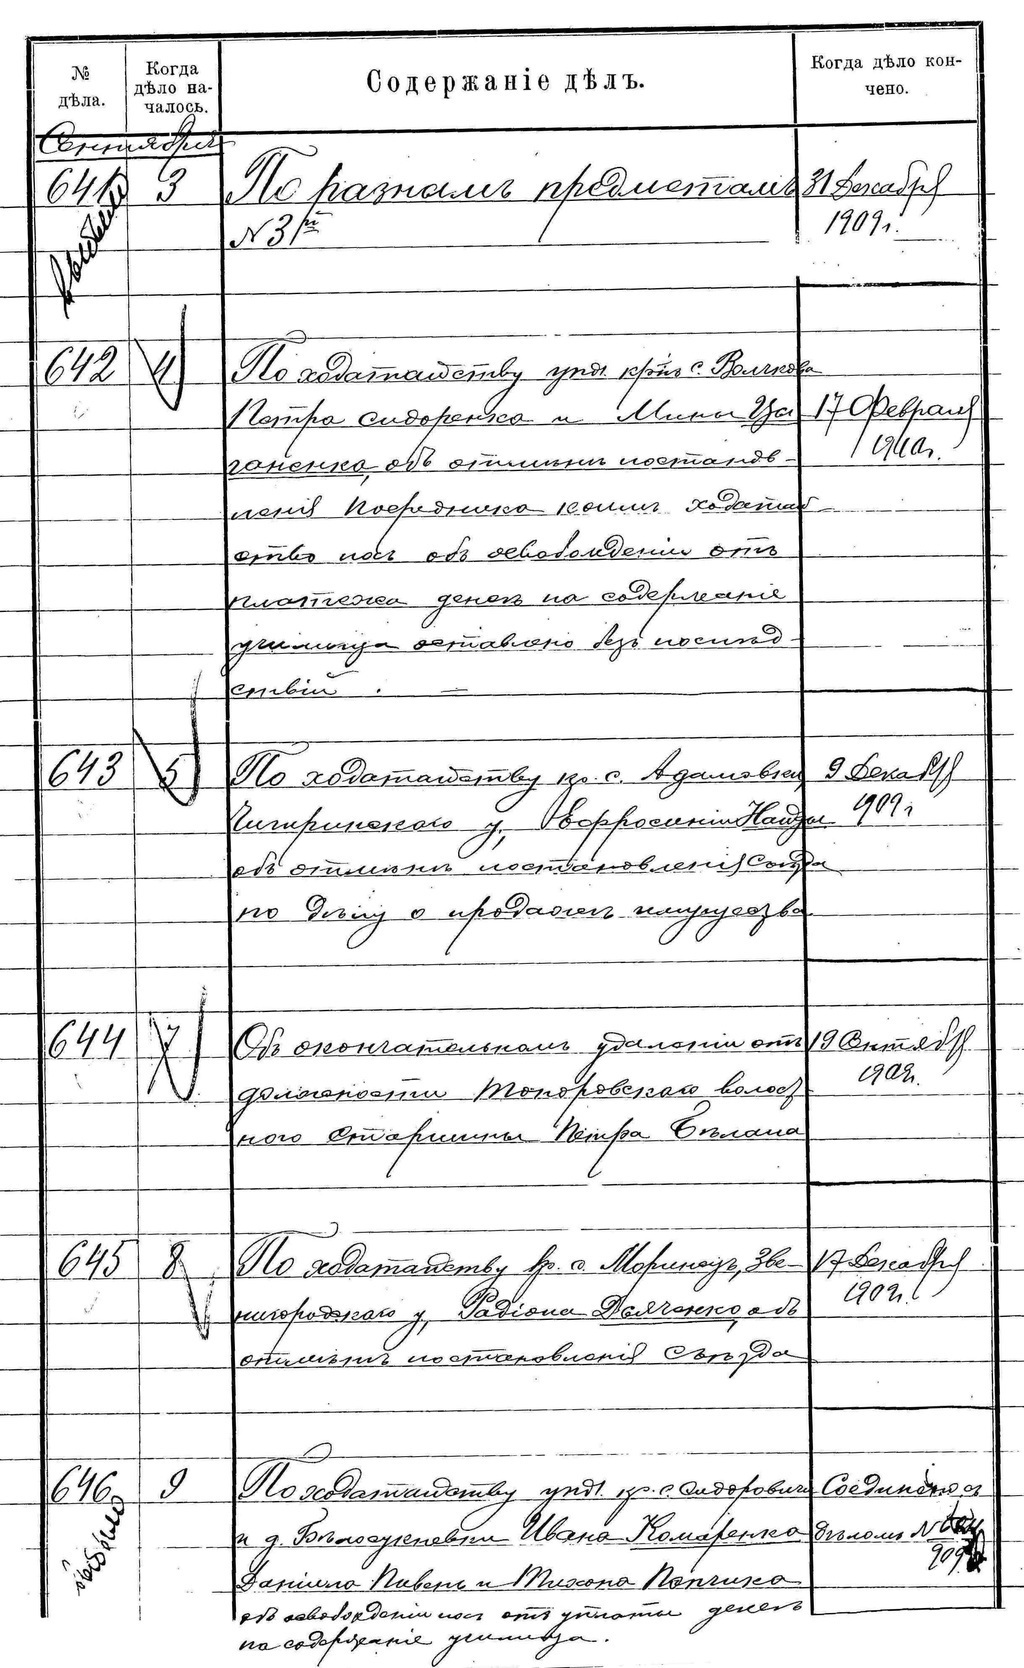 № дѣла.
Когда дѣло началось.
Содержаніе дѣлъ.
Когда дѣло кончено.
Сентября
641 3 По разнымъ предметамъ 31 Декабря
выбыло
№ 31й 1909 г.
642 4 По ходатайству упол. кр-нъ с. Волчкова
Петра Сидоренка и Мины Цы- 17 Февраля
ганенка, объ отмѣнѣ постанов- 1910 г.
ленія Посредника коимъ ходатай-
ство ихъ объ освобожденіи отъ
платежа денегъ на содержаніе
училища оставлено безъ послѣд-
ствій. —
643 5 По ходатайству кр. с. Адамовки, 9 Декабря
Чигиринскаго у., Евфросиніи 1909 г.
объ отмѣнѣ постановленія Съѣзда
по дѣлу о продажѣ имущества
644 7 Объ окончательномъ удаленіи отъ 19 Сентября
должности Топоровскаго волост- 1909 г.
ного Старшины Петра Бѣлана
645 8 По ходатайству кр. с. Моринецъ, Зве- 17 Декабря
нигородскаго у., Радіона Дьяченко, объ 1909 г.
отмѣнѣ постановленія Съѣзда
646 9 По ходатайству упол. кр. с. Сидорович Соединено съ
выбыло
и д. Бѣлосуковки Ивана Комаренка дѣломъ №
Даніила Пивень и Тихона Папчика 909
объ освобожденіи ихъ отъ уплаты денегъ
на содержаніе училища.